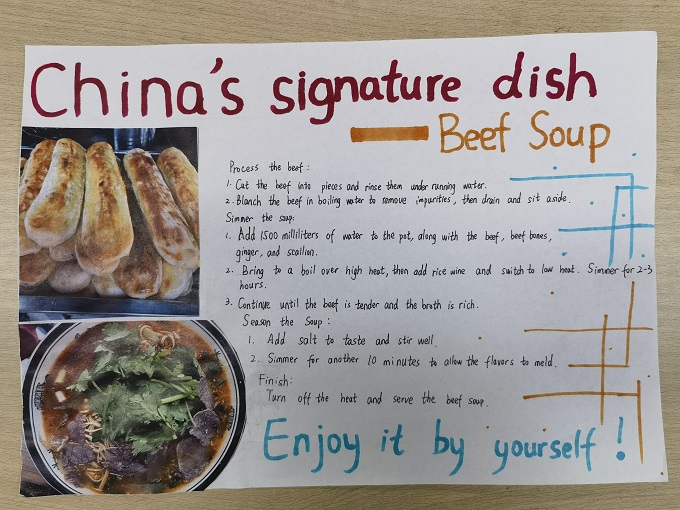 China's signature dish
Beef Soup
Process the beef:
1. Cut the beef into pieces and rinse them under running water.
2. Blanch the beef in boiling water to remove impurities, then drain and sit aside.
Simmer the soup:
1. Add 1500 milliliters of water to the pot, along with the beef, beef bones,
ginger, and scallion.
2. Bring to a boil over high heat, then add rice wine and switch to low heat. Simmer for 2-3
hours.
3. Continue until the beef is tender and the broth is rich.
Season the Soup:
1. Add salt to taste and stir well.
2. Simmer for another 10 minutes to allow the flavors to meld.
Finish:
Turn off the heat and serve the beef soup.
Enjoy it by yourself!